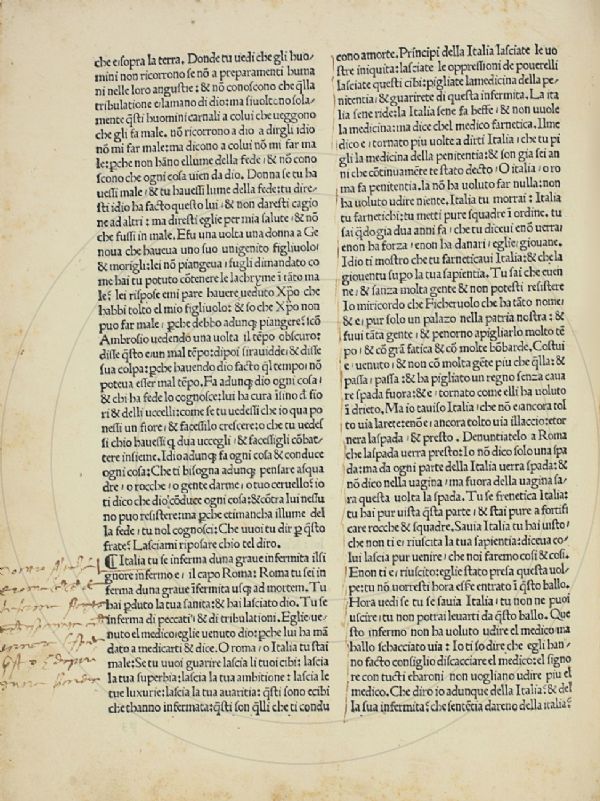 che e sopra la terra. Donde tu uedi che gli huo-
mini non ricorrono se nõ a preparamenti huma
ni nelle loro angustie: & nõ conoscono che q̃lla
tribulatione e lamano di dio: ma si uoltono sola-
mente q̃sti huomini carnali a colui che ueggono
che gli fa male. nõ ricorrono a dio a dirgli idio
nõ mi far male: ma dicono a colui nõ mi far ma
le: ꝑche non hãno el lume della fede: & nõ cono
scono che ogni cosa uien da dio. Donna se tu ha
uessi male, & tu hauessi lume della fede: tu dire-
sti idio ha facto questo lui: & non daresti cagio
ne ad altri: ma diresti egli e per mia salute: & nõ
che fussi in male. E fu una uolta una donna a Ge
noua che haueua uno suo unigenito figliuolo:
& morigli: lei nõ piangeua: fugli dimandato co
me hai tu potuto cõtenere le lachryme ĩ tãto ma
le: lei rispose emi pare hauere ueduto Xp̃o che
habbi tolto el mio figliuolo: & so che Xp̃o non
puo far male, ꝑche debbo adunq̃ piangere: scõ
Ambrosio uedendo una uolta il tẽpo obscuro:
disse q̃sto e un mal tẽpo: dipoi si rauidde: & disse
sua colpa: ꝑche hauendo dio facto q̃l tempo: nõ
poteua esser mal tẽpo. Fa adunq̃ dio ogni cosa:
& chi ha fede lo cognosce: lui ha cura ĩsino d fio
ri & delli uccelli: come se tu uedessi che io qua po
nessi un fiore: & facessilo crescere: o che tu uedes
si chio hauessi q̃ dua uccegli: & facessigli cõbat-
tere insieme. Idio adunq̃ fa ogni cosa & conduce
ogni cosa: Che ti bisogna adunq̃ pensare a squa
dre, o rocche, o gente darme, o tuo ceruello: io
ti dico che dio cõduce ogni cosa: & cõtra lui nessu
no puo resistere: ma ꝑche etimancha illume del
la fede, tu nol cognosci: Che uuoi tu dir ꝑ q̃sto
frate? Lasciami riposare chio tel diro.
¶ Italia tu se inferma duna graue infermita il si
gnore infermo e, il capo Roma: Roma tu sei in
ferma duna graue ĩfermita usq̃ ad mortem. Tu
hai ꝑduto la tua sanita: & hai lasciato dio. Tu se
inferma di peccati, & di tribulationi. Egli e ue-
nuto el medico: eglie uenuto dio: ꝑche lui ha mã
dato a medicarti & dice. O roma, o Italia tu stai
male: Se tu uuoi guarire lascia li tuoi cibi: lascia
la tua superbia: lascia la tua ambitione: lascia le
tue luxurie: lascia la tua auaritia: q̃sti sono e cibi
che thanno infermata: q̃sti son q̃lli che ti condu
cono a morte. Principi della Italia lasciate le uo
stre iniquita: lasciate le oppressioni de pouerelli
lasciate questi cibi: pigliate la medicina della pe-
nitentia: & guarirete di questa infermita. La ita
lia sene ride: la Italia sene fa beffe, & non uuole
la medicina: ma dice chel medico farnetica. Il me
dico e, tornato piu uolte a dirti Italia che tu pi
gli la medicina della penitentia: & son gia sei an
ni che cõtinuamẽte te stato decto, O italia, o ro
ma fa penitentia. la nõ ha uoluto far nulla: non
ha uoluto udire niente. Italia tu morrai: Italia
tu farnetichi: tu metti pure squadre ĩ ordine. tu
sai q̃do gia dua anni fa, che tu diceui enõ uerra:
enon ha forza, enon ha danari, eglie giouane.
Idio ti mostro che tu farneticaui Italia: & che la
giouentu supo la tua sapientia. Tu sai che euen-
ne, & sanza molta gente & non potesti resistere
Io mi ricordo che Ficheruolo che ha tãto nome,
& e, pur solo un palazo nella patria nostra: &
fuui tãta gente, & penorno a pigliarlo molto tẽ
po, & cõ grã fatica & cõ molte bõbarde. Costui
e, uenuto, & non cõ molta gẽte piu che q̃lla: &
passa, passa: & ha pigliato un regno senza caua
re spada fuora: & e, tornato come elli ha uoluto
ĩ drieto. Ma io tauiso Italia, che nõ e ancora tol
to uia larete: enõ e, ancora tolto uia illaccio: etor
nera la spada & presto. Denuntiatelo a Roma
che la spada uerra presto: Io nõ dico solo una spa
da: ma da ogni parte della Italia uerra spada: &
nõ dico nella uagina, ma fuora della uagina sa-
ra questa uolta la spada. Tu se frenetica Italia:
tu hai pur uista q̃sta parte & stai pure a fortifi
care rocche & squadre. Sauia Italia tu hai uisto,
che non ti e, riuscita la tua sapientia: diceua co-
lui lascia pur uenire, che noi faremo cosi & cosi.
E non ti e, riuscito: eglie stato presa questa uol-
pe: tu nõ uorresti hora esser entrato ĩ q̃sto ballo.
Hora uedi se tu se sauia Italia, tu non ne puoi
uscire, tu non potrai leuarti da q̃sto ballo. Que
sto infermo non ha uoluto udire el medico ma
ballo schacciato uia: Io ti so dire che egli han-
no facto consiglio discacciare el medico: el signo
re con tucti e baroni non uogliano udire piu el
medico. Che diro io adunque della Italia: & del
la sua infermita: che sentẽtia dareno della italia: